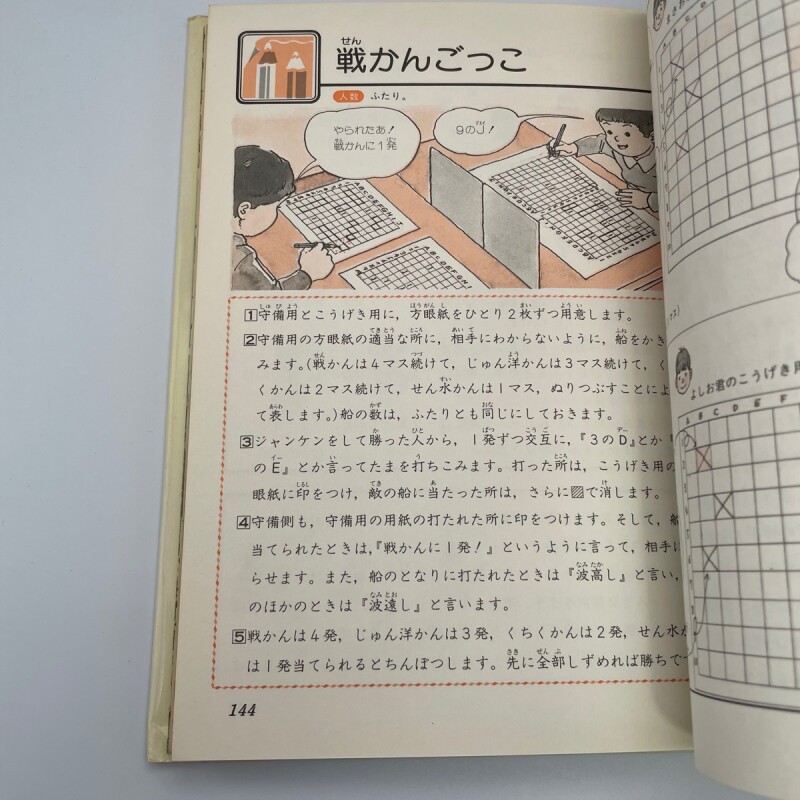 戦かんごっこ
人数 ふたり。
やられたあ!
戦かんに1発
9のJ!
1守備用とこうげき用に，方眼紙をひとり2枚ずつ用意します。
2守備用の方眼紙の適当な所に，相手にわからないように，船をかき
みます。(戦かんは4マス続けて，じゅん洋かんは3マス続けて，く
くかんは2マス続けて，せん水かんは1マス，ぬりつぶすことによ
て表します。)船の数は，ふたりとも同じにしておきます。
3ジャンケンをして勝った人から，1発ずつ交互に，『3のD』とか
のE』とか言ってたまを打ちこみます。打った所は，こうげき用の
眼紙に印をつけ，敵の船に当たった所は，さらに▨で消します。
4守備側も，守備用の用紙の打たれた所に印をつけます。そして，船
当てられたときは，『戦かんに1発!』というように言って，相手に
らせます。また，船のとなりに打たれたときは『波高し』と言い，
のほかのときは『波遠し』と言います。
5戦かんは4発，じゅん洋かんは3発，くちくかんは2発，せん水か
は1発当てられるとちんぼつします。先に全部しずめれば勝ちです
144
マス)
よしお君のこうげき用
A B C D E F